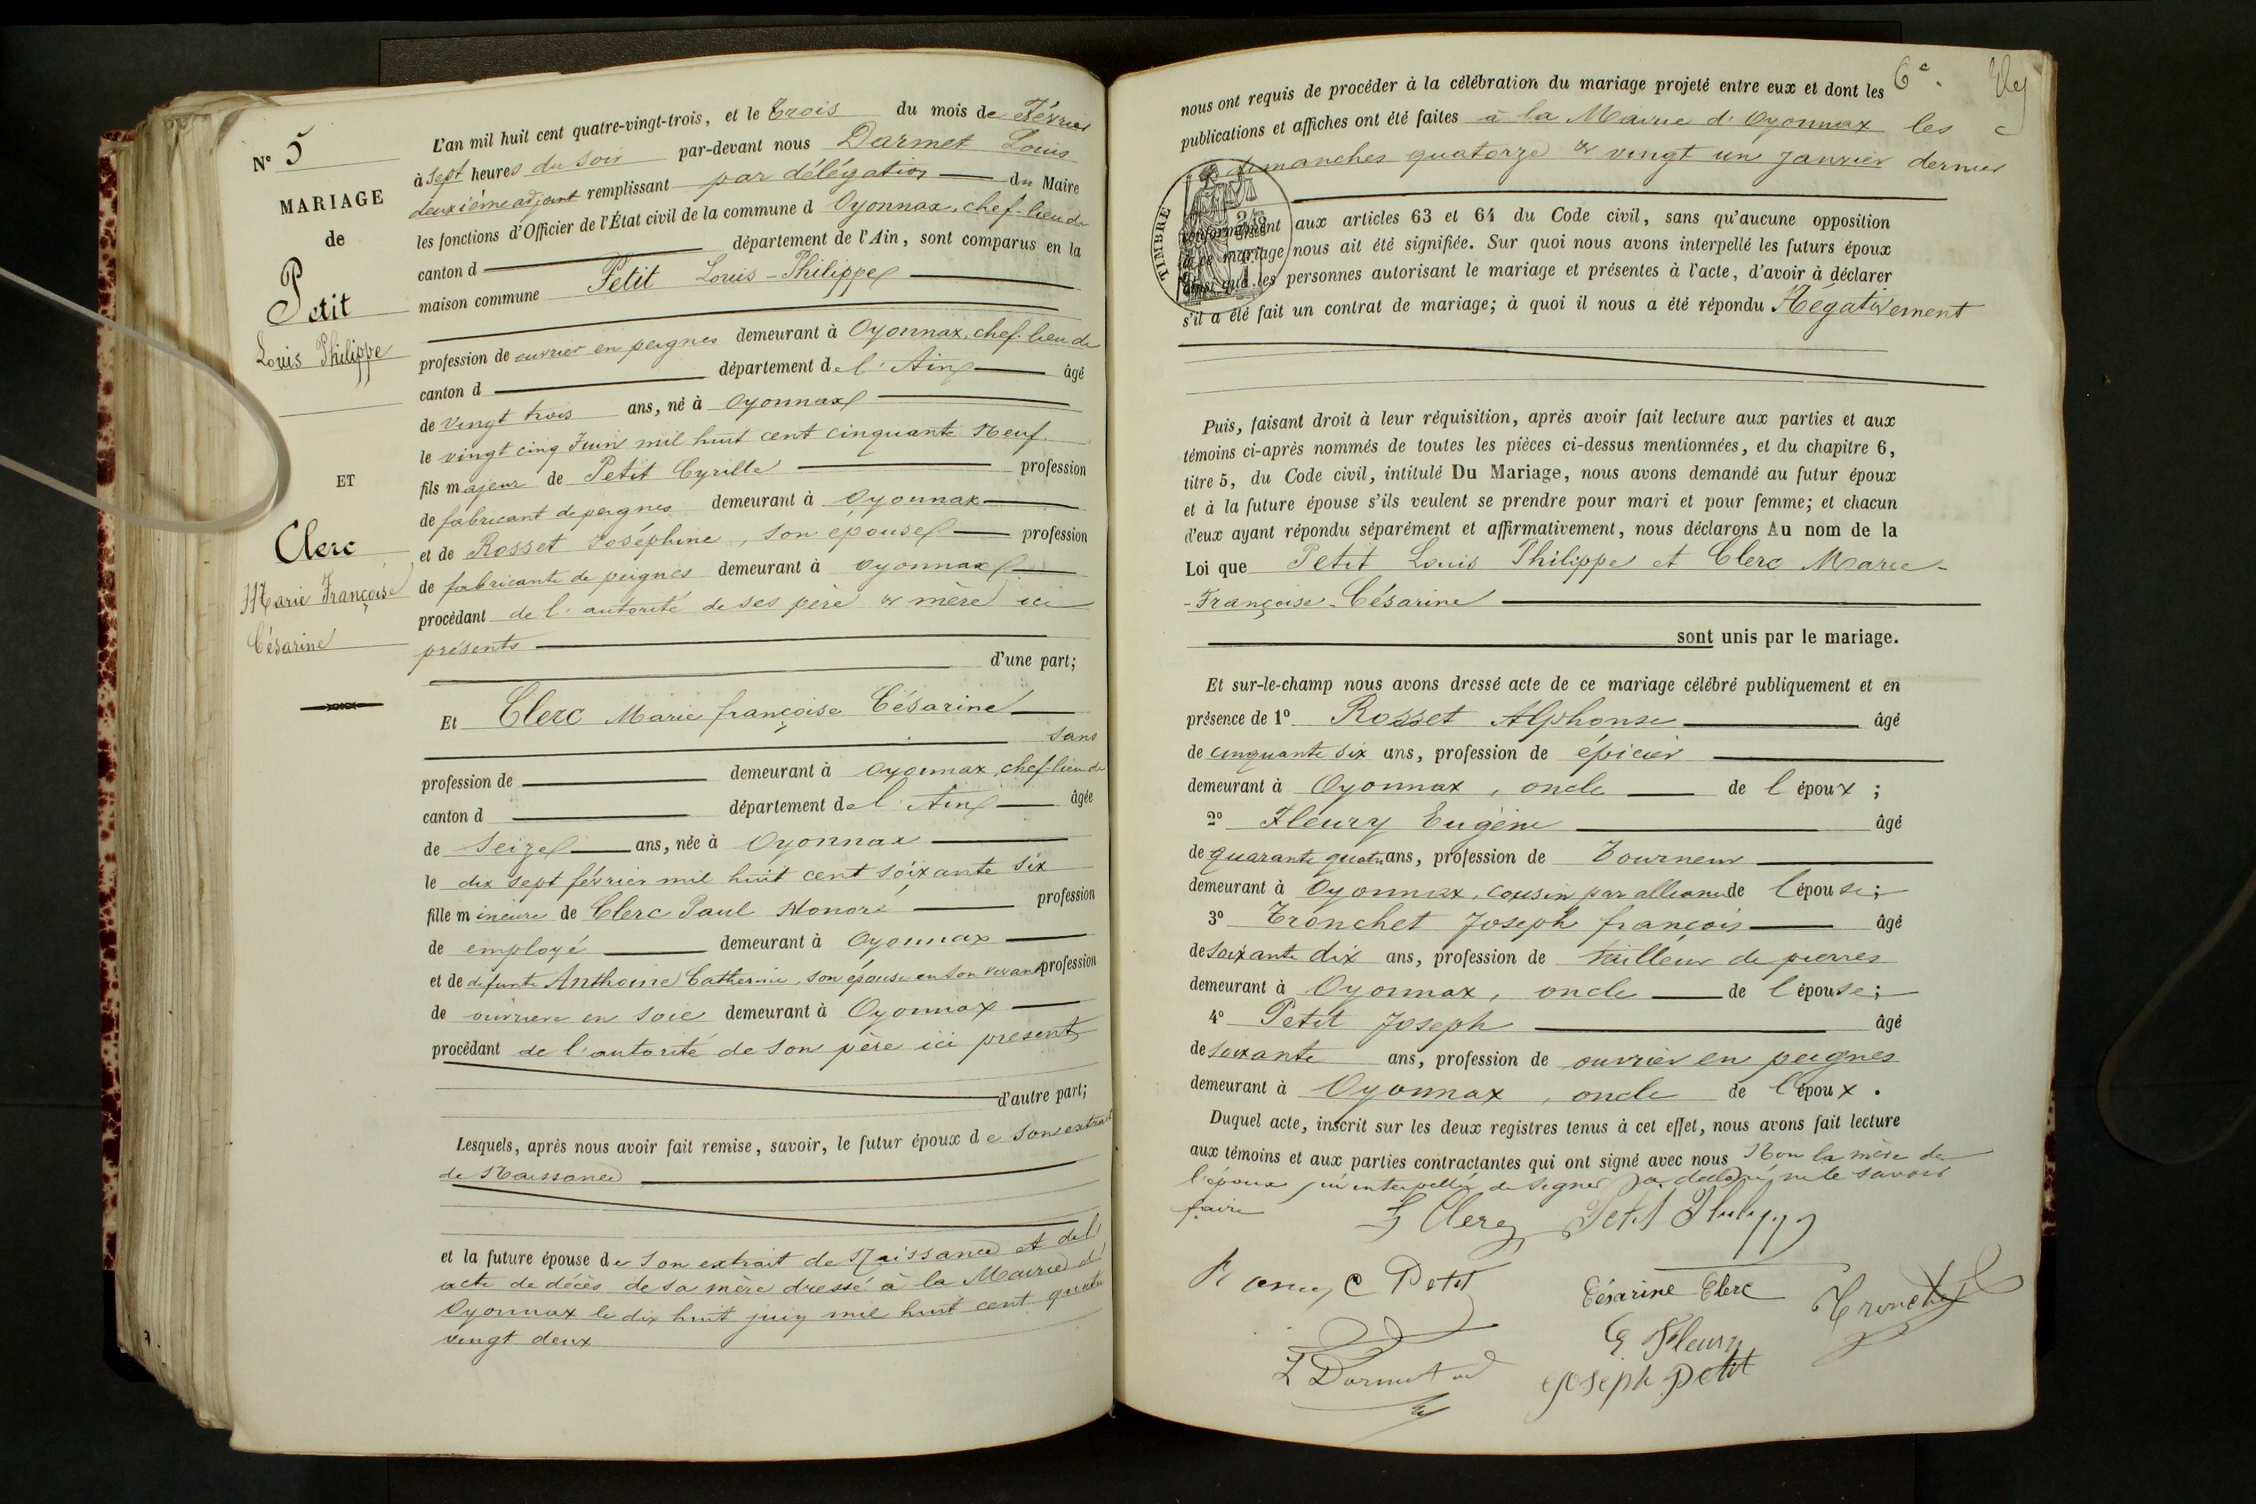 N° 5
MARIAGE
de
Petit
Louis Philippe
ET
Clerc
Marie Françoise
Césarine
L'an mil huit cent quatre-vingt-trois, et le trois du mois de Février
à sept heures du soir par-devant nous Darmet Louis
deuxième adjoint remplissant par délégation du Maire
les fonctions d'Officier de l'État civil de la commune d Oyonnax, chef-lieu de
canton d département de l'Ain, sont comparus en la
maison commune Petit Louis-Philippe
profession de ouvrier en peignes demeurant à Oyonnax, chef-lieu de
canton d département de l'Ain âgé
de vingt trois ans, né à Oyonnax
le vingt cinq Juin mil huit cent cinquante Neuf
fils majeur de Petit Cyrille profession
de fabricant de peignes demeurant à Oyonnax
et de Rosset Joséphine, son épouse profession
de fabricante de peignes demeurant à Oyonnax
procédant de l'autorité de ses père & mère ici
présents
d'une part;
Et Clerc Marie françoise Césarine
sans
profession de demeurant à Oyonnax, chef-lieu de
canton d département de l'Ain âgée
de Seize ans, née à Oyonnax
le dix sept février mil huit cent soixante six
fille mineure de Clerc Paul Honoré profession
de employé demeurant à Oyonnax
et de défunte Anthoine Catherine, son épouse en son vivant profession
de ouvrière en soie demeurant à Oyonnax
procédant de l'autorité de son père ici présent
d'autre part;
Lesquels, après nous avoir fait remise, savoir, le futur époux de son extrait
de Naissance
et la future épouse de son extrait de Naissance et del
acte de décès de sa mère dressé à la Mairie d'
Oyonnax le dix huit juin mil huit cent quatre
vingt deux
6e
nous ont requis de procéder à la célébration du mariage projeté entre eux et dont les
publications et affiches ont été faites à la Mairie d'Oyonnax les
dimanches quatorze & vingt un Janvier dernier
TIMBRE
conformément aux articles 63 et 64 du Code civil, sans qu'aucune opposition
à ce mariage nous ait été signifiée. Sur quoi nous avons interpellé les futurs époux
ainsi que les personnes autorisant le mariage et présentes à l'acte, d'avoir à déclarer
s'il a été fait un contrat de mariage; à quoi il nous a été répondu Négativement
Puis, faisant droit à leur réquisition, après avoir fait lecture aux parties et aux
témoins ci-après nommés de toutes les pièces ci-dessus mentionnées, et du chapitre 6,
titre 5, du Code civil, intitulé Du Mariage, nous avons demandé au futur époux
et à la future épouse s'ils veulent se prendre pour mari et pour femme; et chacun
d'eux ayant répondu séparément et affirmativement, nous déclarons Au nom de la
Loi que Petit Louis Philippe et Clerc Marie-
-Françoise-Césarine
sont unis par le mariage.
Et sur-le-champ nous avons dressé acte de ce mariage célébré publiquement et en
présence de 1° Rosset Alphonse âgé
de cinquante six ans, profession de épicier
demeurant à Oyonnax, oncle de l'époux;
2° Fleury Eugène âgé
de quarante quatre ans, profession de Tourneur
demeurant à Oyonnax, cousin par alliance de l'épouse;
3° Tronchet Joseph françois âgé
de soixante dix ans, profession de tailleur de pierres
demeurant à Oyonnax, oncle de l'épouse;
4° Petit Joseph âgé
de soixante ans, profession de ouvrier en peignes
demeurant à Oyonnax, oncle de l'époux.
Duquel acte, inscrit sur les deux registres tenus à cet effet, nous avons fait lecture
aux témoins et aux parties contractantes qui ont signé avec nous Non la mère de
l'époux qui interpellée de signer a déclaré ne le savoir
faire
Clerc Petit Philippe
C Petit Césarine Clerc Tronchet
E Fleury
L Darmet ad
Joseph Petit